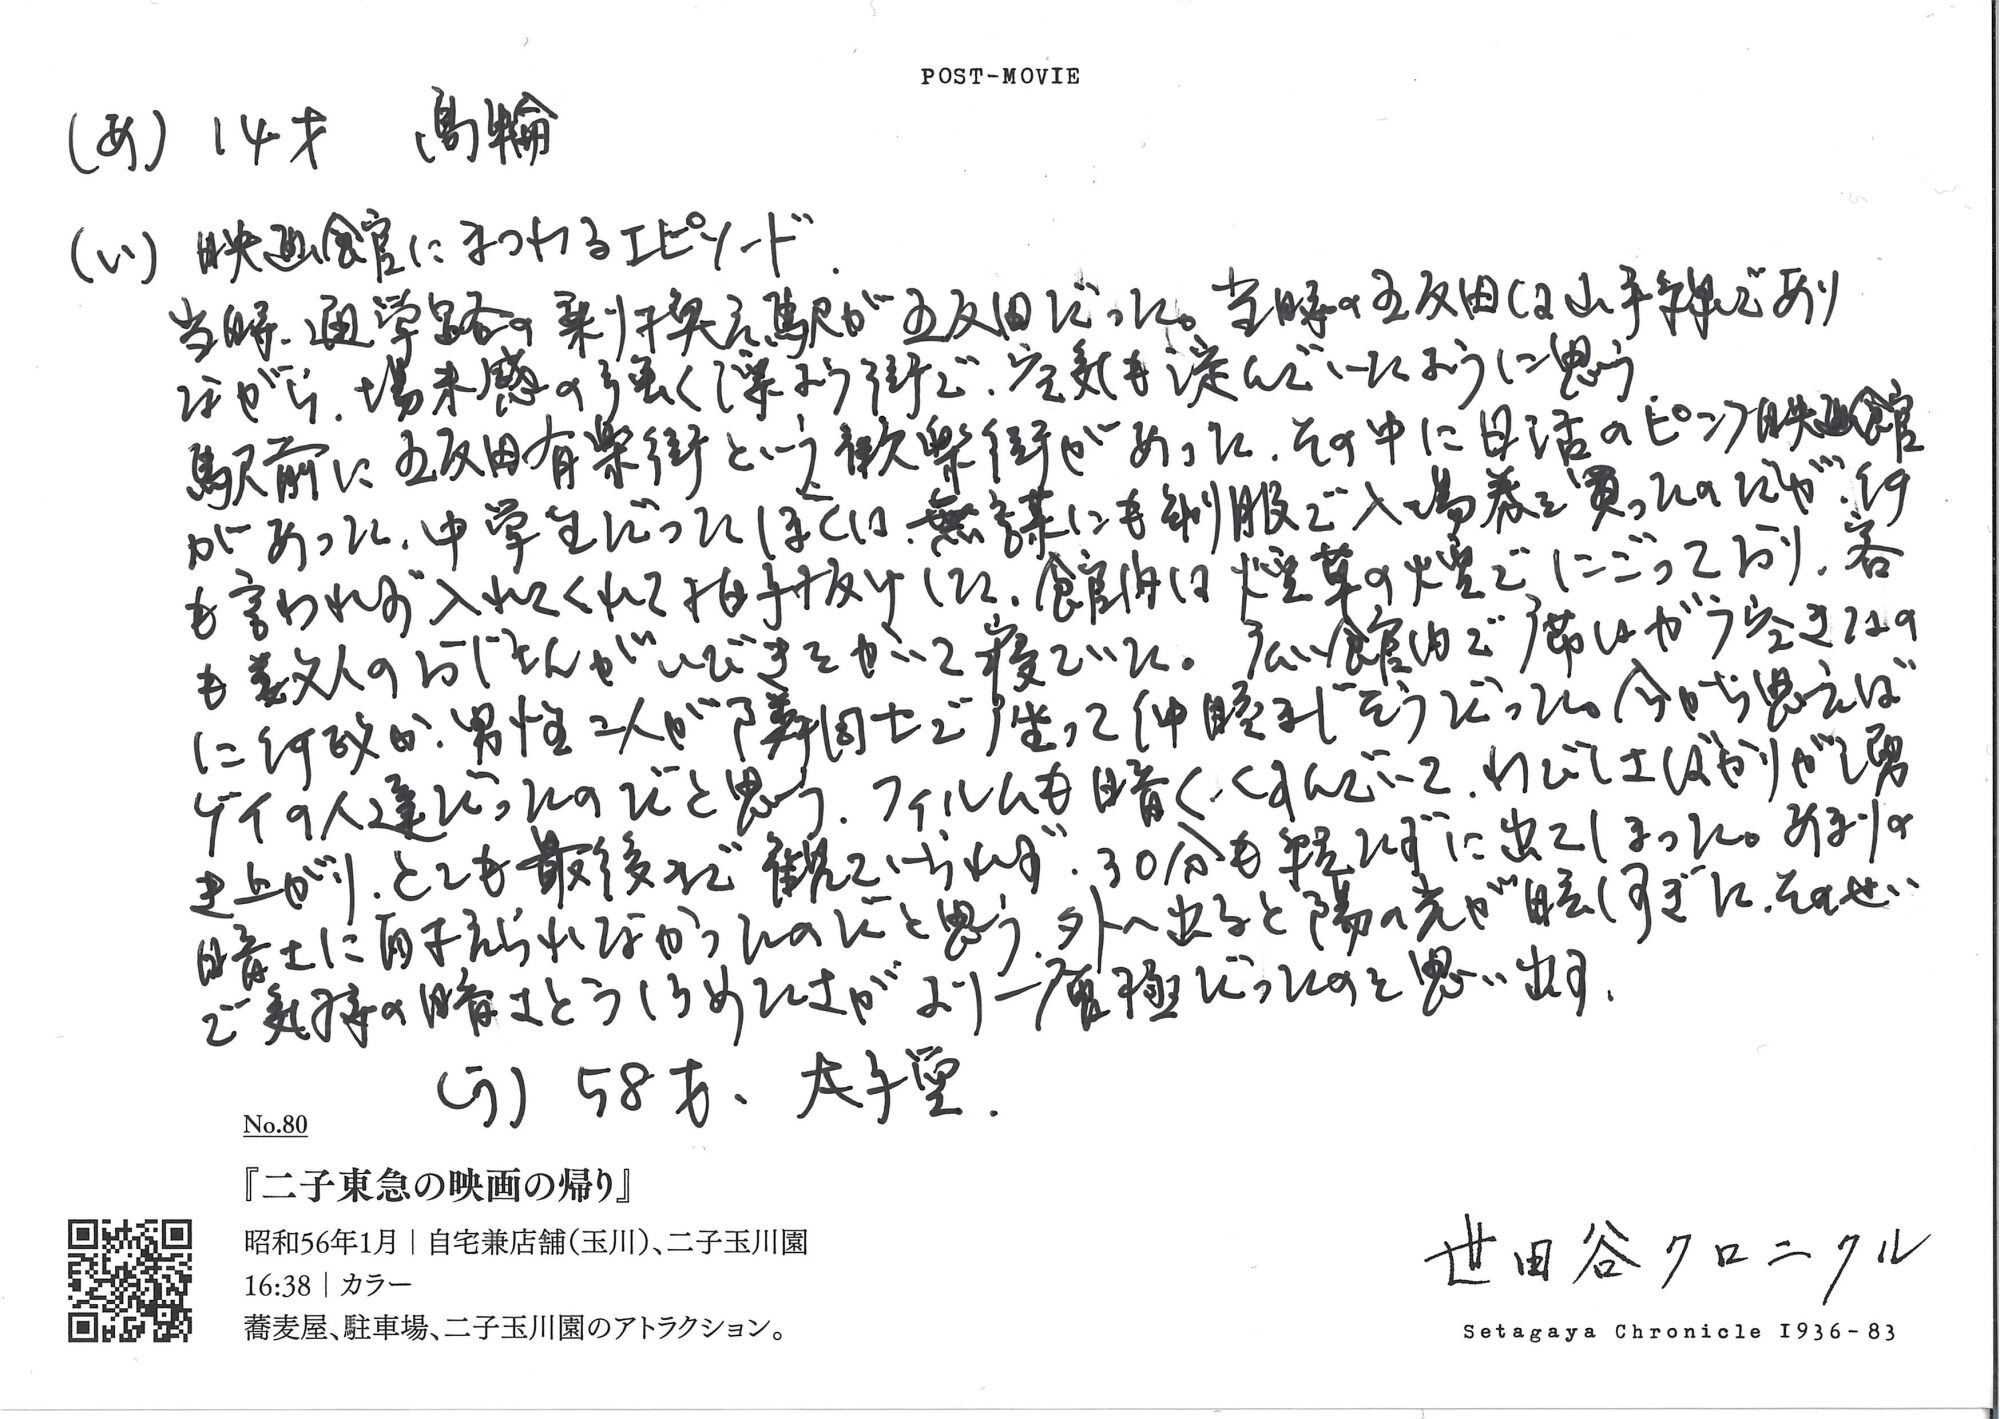 POST-MOVIE
(あ) 14才 高輪
(い) 映画館にまつわるエピソード.
当時、通学路の乗り換え駅が五反田だった。当時の五反田は山手線であり
ながら、場末感の強くじみよう街で、空気も淀んでいたように思う
駅前に五反田有楽街という歓楽街があった、その中に日活のピンク映画館
があった、中学生だったぼくは、無謀にも制服で入場券を買ったのだが、何
も言われず入れてくれて拍子抜けした、館内は煙草の煙でにごっており、客
も数人のおじさんがいびきをかいて寝ていた。広い館内で席はがら空きなの
に何故か、男性二人が隣同士で座って仲睦まじそうだった。今から思えば
ゲイの人達だったのだと思う、フィルムも暗く、くすんでいて、わびしさばかりが湧
き上がり、とても最後まで観ていられず、30分も経たずに出てしまった。あまりの
暗さに耐えられなかったのだと思う、外へ出ると陽の光が眩しすぎた、そのせい
で気持の暗さとうしろめたさがより一層極だったのを思い出す.
(う) 58才、大子堂.
No.80
『二子東急の映画の帰り』
昭和56年1月 | 自宅兼店舗(玉川)、二子玉川園
16:38 | カラー
蕎麦屋、駐車場、二子玉川園のアトラクション。
世田谷クロニクル
Setagaya Chronicle 1936-83